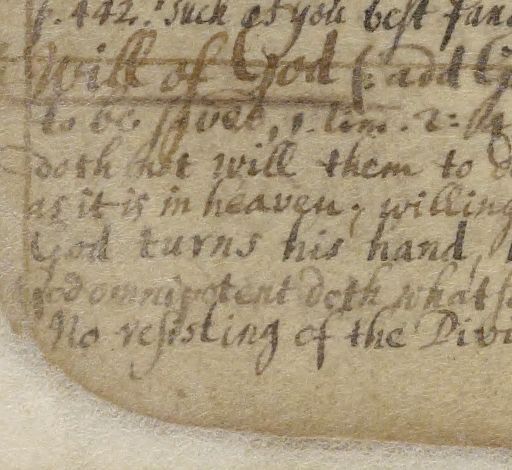 p. 442. such as you best
Will of God (: add
to be saved, 1. Tim. 2:
doth not will them to
as it is in heaven; willing
God turns his hand,
God omnipotent doth what
No resisting of the Divi